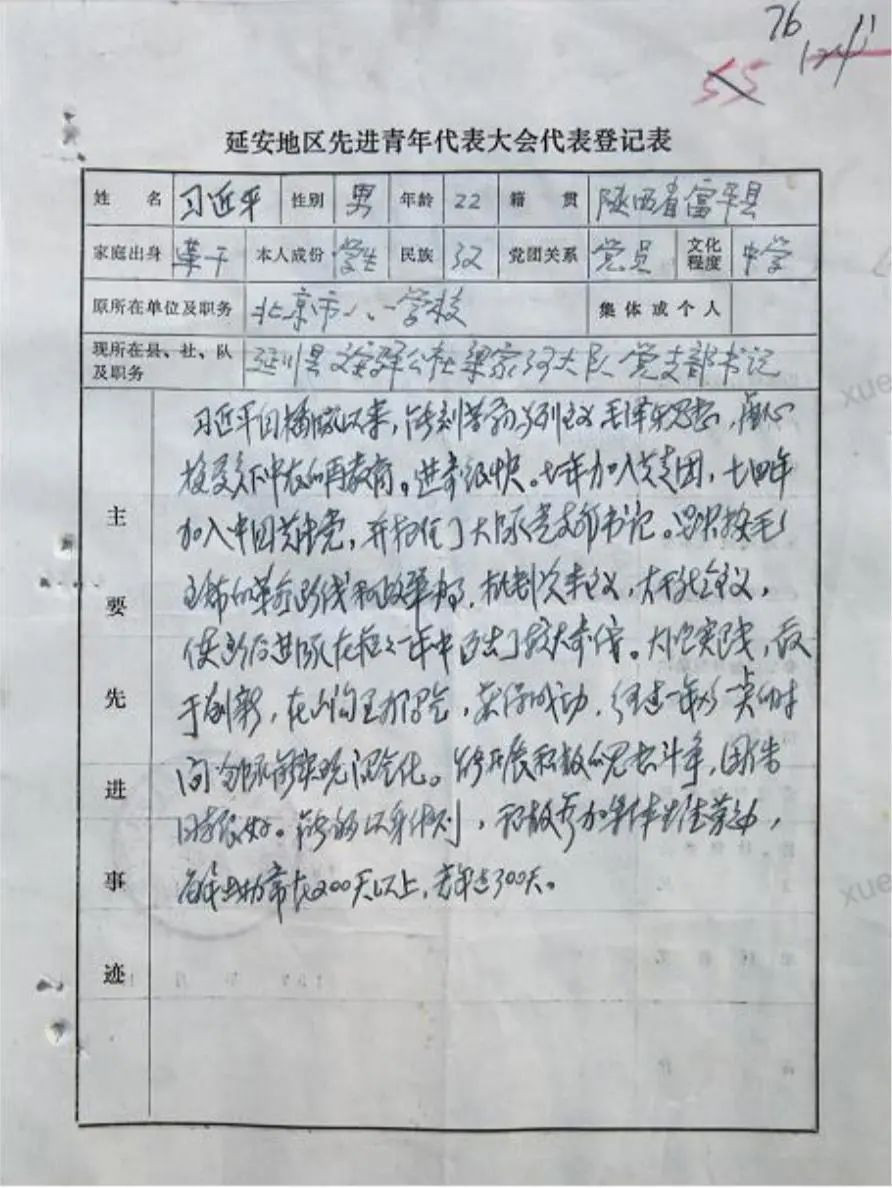 76
11
55
延安地区先进青年代表大会代表登记表
姓名 习近平 性别 男 年龄 22 籍贯 陕西省富平县
家庭出身 革干 本人成份 学生 民族 汉 党团关系 党员 文化程度 中学
原所在单位及职务 北京市八一学校 集体或个人
现所在县、社、队及职务 延川县文安驿公社梁家河大队党支部书记
主要先进事迹
习近平自插队以来,能刻苦学习马列主义毛泽东思想,虚心
接受贫下中农的再教育。进步很快。七年加入共青团,七四年
加入中国共产党,并担任了大队党支部书记。坚决按毛
主席的革命路线和政策办事,批判资本主义,大干社会主义,
使后进队在短短一年中迈出了较大步伐。大胆实践,敢
于创新,在山沟里办沼气,获得成功,经过一年多一点的时
间全队实现沼气化。能开展积极的思想斗争,团结
同志很好。能够以身作则,积极参加集体生产劳动,
每年出勤常在200天以上,去年达300天。
xue
xue